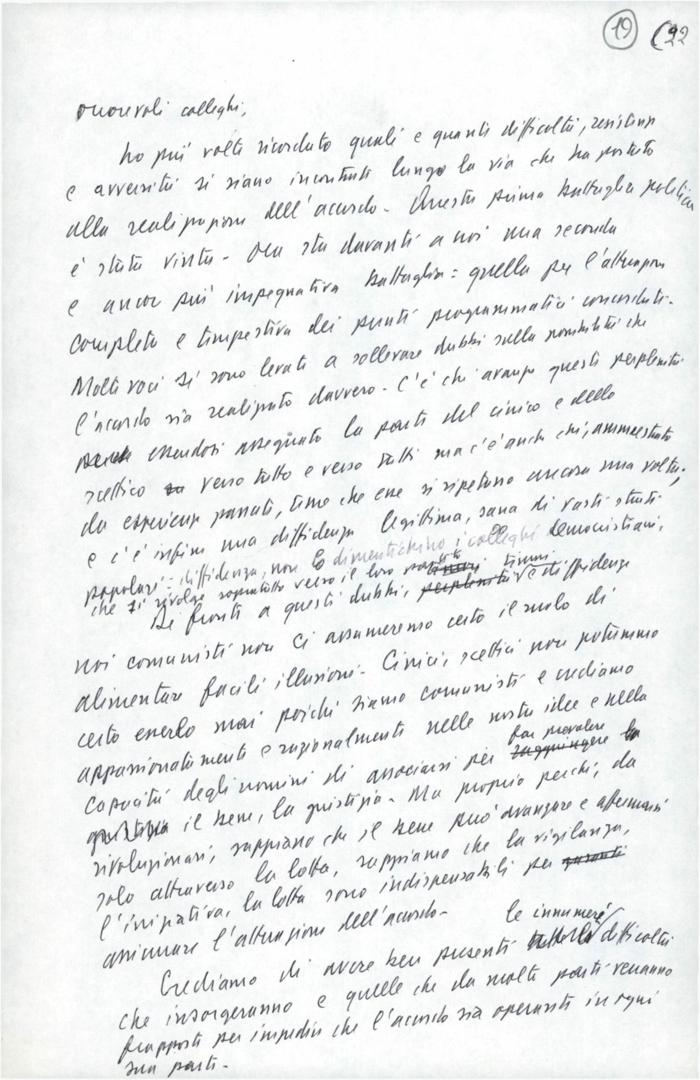 19 22
onorevoli colleghi,
ho più volte ricordato quali e quante difficoltà, resistenze
e avversità si siano incontrate lungo la via che ha portato
alla realizzazione dell'accordo - Questa prima battaglia politica
è stata vinta - Ora sta davanti a noi una seconda
e ancor più impegnativa battaglia: quella per l'attuazione
completa e tempestiva dei punti programmatici concordati -
Molte voci si sono levate a sollevare dubbi sulla possibilità che
l'accordo sia realizzato davvero - C'è chi avanza questi perplessità
essendosi assegnato la parte del cinico e dello
scettico verso tutto e verso tutti ma c'è anche chi, ammaestrato
da esperienze passate, teme che esse si ripetano ancora una volta;
e c'è infine una diffidenza legittima, sana di vasti strati
popolari - diffidenza, non lo dimentichino i colleghi democristiani,
che si rivolge soprattutto verso il loro partito
Di fronte a questi dubbi, timori e diffidenze
noi comunisti non ci assumeremo certo il ruolo di
alimentare facili illusioni - Cinici, scettici non potremmo
certo esserlo mai poiché siamo comunisti e crediamo
appassionatamente e razionalmente nelle nostre idee e nella
capacità degli uomini di associarsi per far prevalere
il bene, la giustizia - Ma proprio perché, da
rivoluzionari, sappiamo che il bene può avanzare e affermarsi
solo attraverso la lotta, sappiamo che la vigilanza,
l'iniziativa, la lotta sono indispensabili per
assicurare l'attuazione dell'accordo -
Crediamo di avere ben presenti le innumeri difficoltà
che insorgeranno e quelle che da molte parti verranno
frapposte per impedire che l'accordo sia operante in ogni
sua parte -